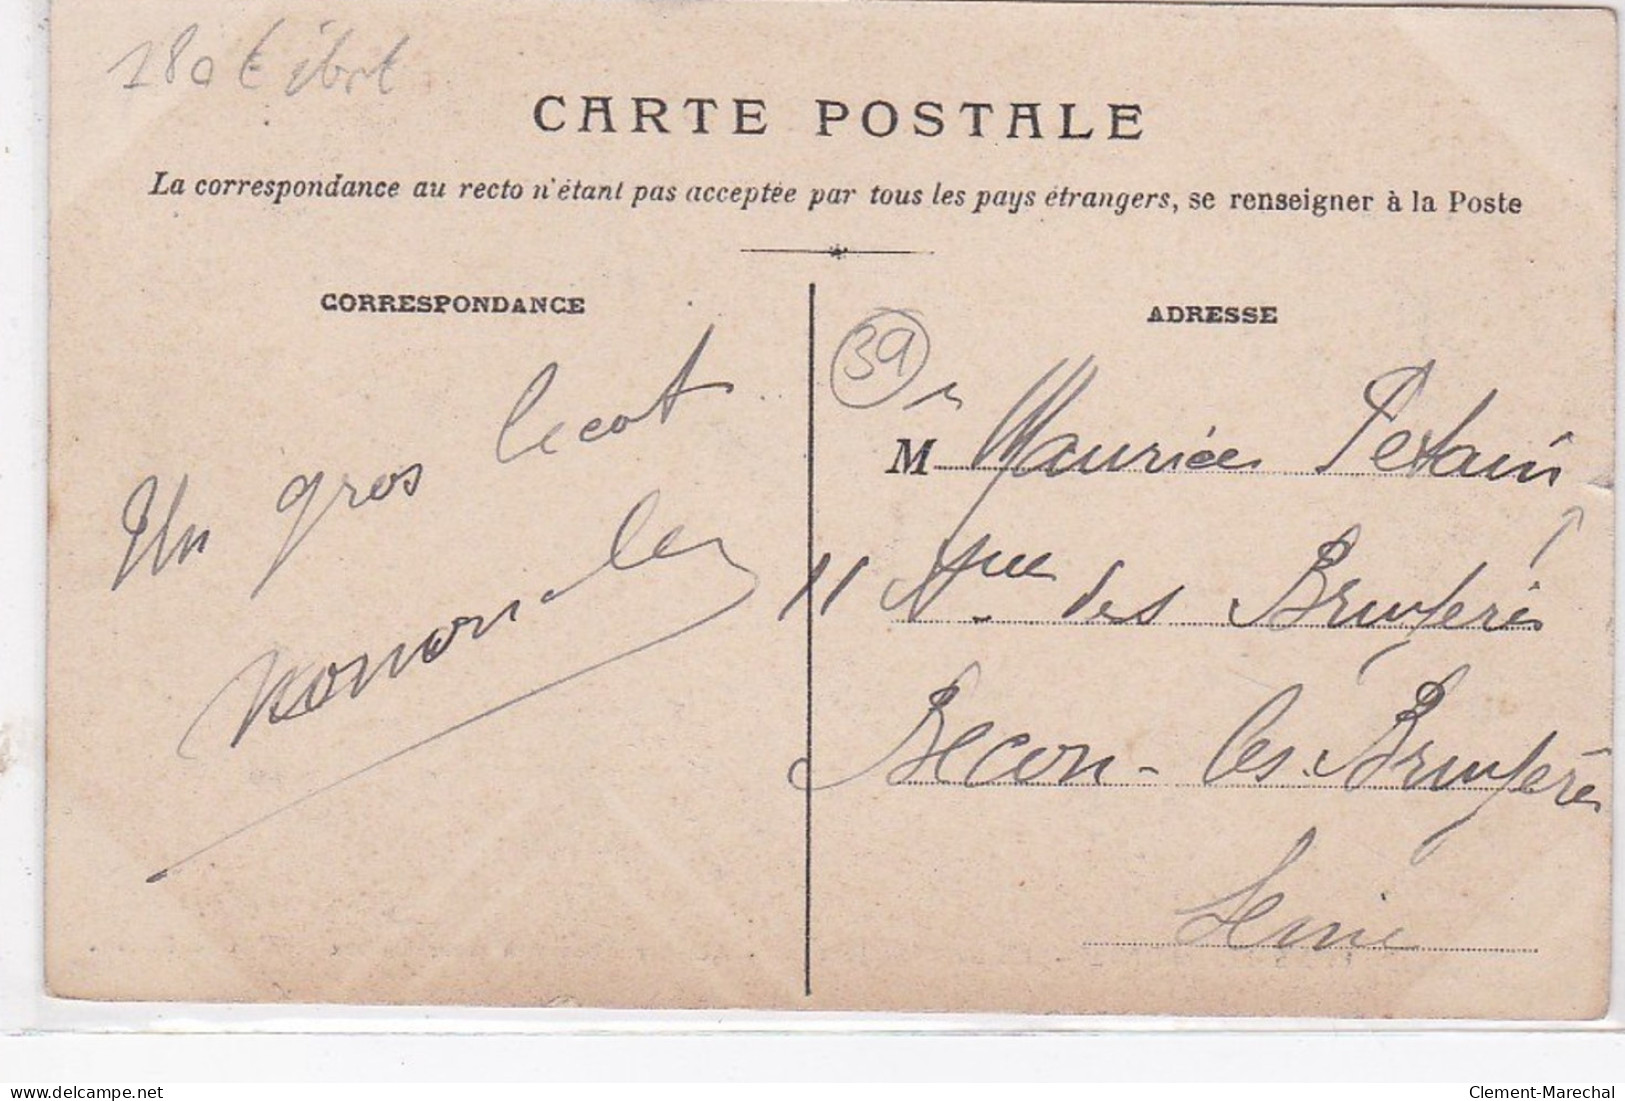 180 €
CARTE POSTALE
La correspondance au recto n'étant pas acceptée par tous les pays étrangers, se renseigner à la Poste
CORRESPONDANCE
ADRESSE
39
Un gros becot
M Maurice Petain
11 Avue des Bruyères
Becon-les-Bruyères
Seine
www.delcampe.net
Clement-Marechal